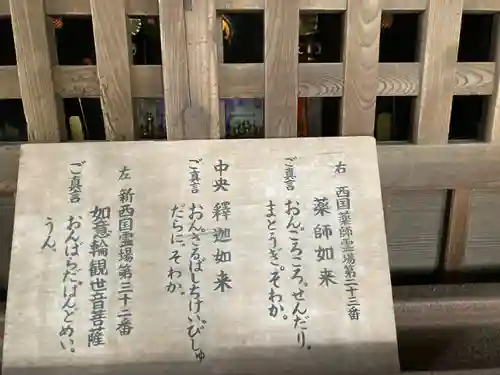 右 西国薬師霊場第二十三番
薬師如来
ご真言 おんころころ。せんだり。
まとうぎ。そわか。
中央 釋迦如来
ご真言 おんさるばしちけい、びしゅ
だらに。そわか。
左 新西国霊場第三十二番
如意輪観世音菩薩
ご真言 おんばらだ、はんどめい。
うん。